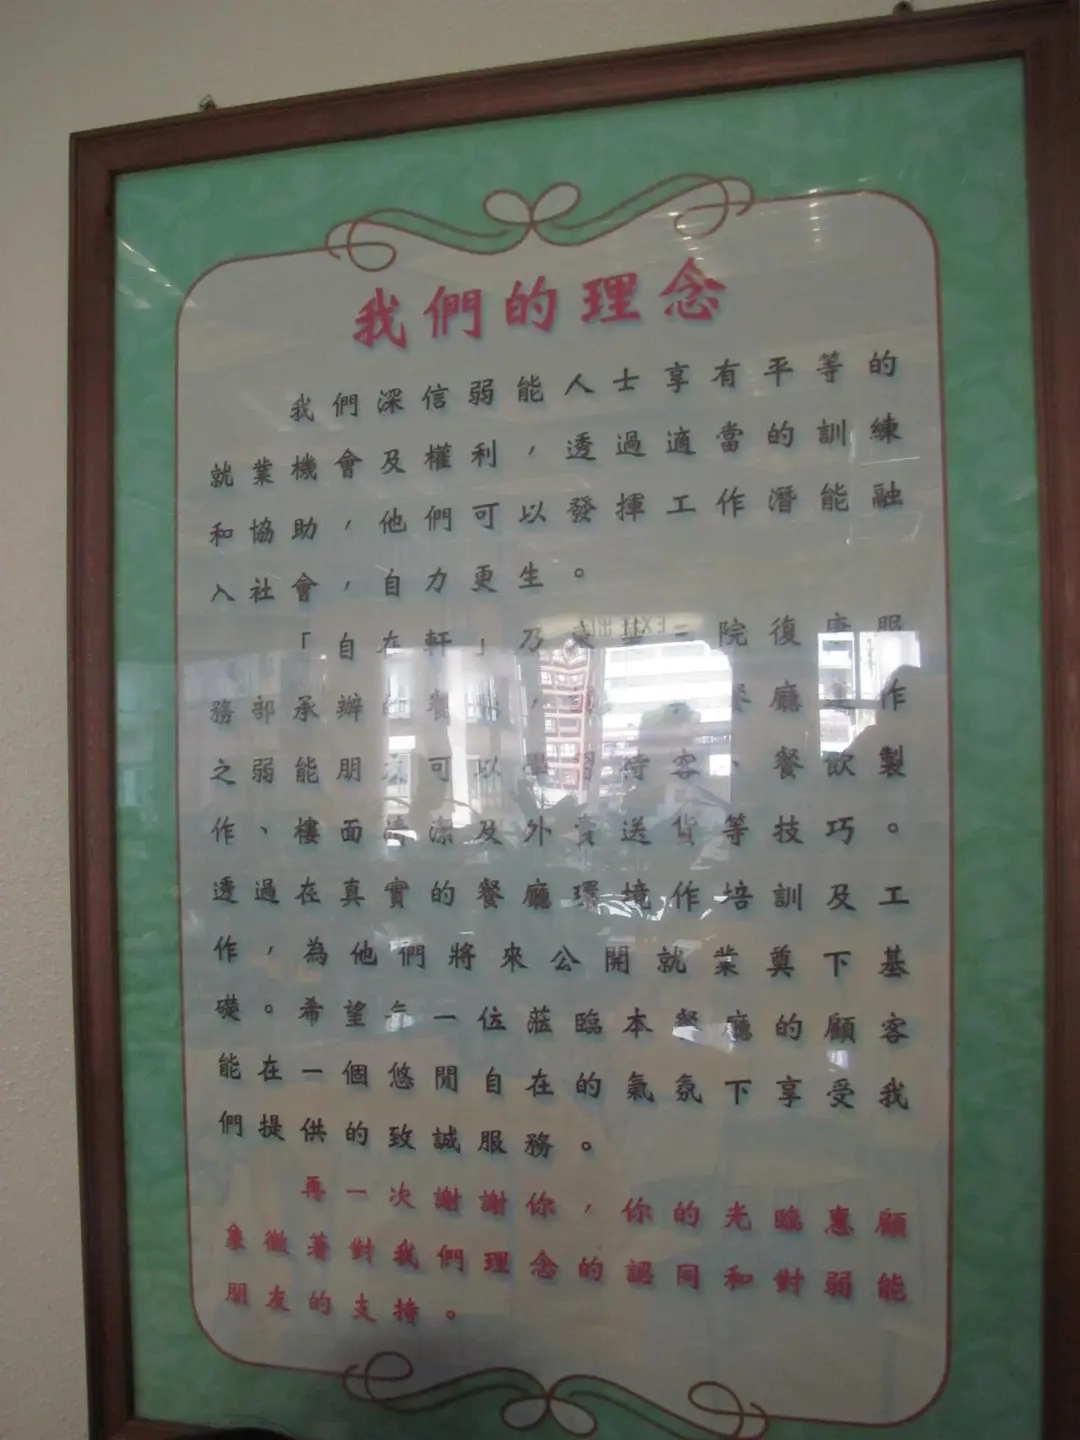 我們的理念
我們深信弱能人士享有平等的
就業機會及權利，透過適當的訓練
和協助，他們可以發揮工作潛能融
入社會，自力更生。
「自在軒」乃東華三院復康服
務部承辦的餐廳，
之弱能朋友可以學習待客、餐飲製
作、樓面清潔及外賣送貨等技巧。
透過在真實的餐廳環境作培訓及工
作，為他們將來公開就業奠下基
礎。希望每一位蒞臨本餐廳的顧客
能在一個悠閒自在的氣氛下享受我
們提供的致誠服務。
再一次謝謝你，你的光臨惠顧
象徵著對我們理念的認同和對弱能
朋友的支持。